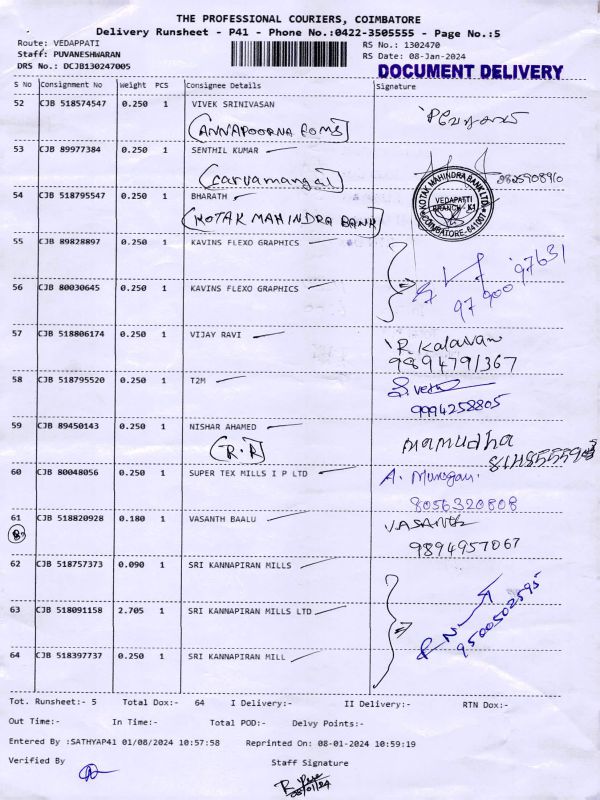 THE PROFESSIONAL COURIERS, COIMBATORE
Delivery Runsheet - P41 - Phone No.:0422-3505555 - Page No.:5
Route: VEDAPPATI
RS No.: 1302470
Staff: PUVANESHWARAN
RS Date: 08-Jan-2024
DRS No.: DCJB130247005
DOCUMENT DELIVERY
S No Consignment No Weight PCS Consignee Details Signature
52 CJB 518574547 0.250 1 VIVEK SRINIVASAN
(ANNAPOORNA ROMS)
53 CJB 89977384 0.250 1 SENTHIL KUMAR
(carvamangal)
54 CJB 518795547 0.250 1 BHARATH
(KOTAK MAHINDRA BANK)
KOTAK MAHINDRA BANK LTD.
VEDAPATTI
BRANCH
COIMBATORE-641007
55 CJB 89828897 0.250 1 KAVINS FLEXO GRAPHICS
56 CJB 80030645 0.250 1 KAVINS FLEXO GRAPHICS
97900 97631
57 CJB 518806174 0.250 1 VIJAY RAVI R. Kalaivan
9894791367
58 CJB 518795520 0.250 1 T2M
9994258805
59 CJB 89450143 0.250 1 NISHAR AHAMED mamudha
(R.R)
60 CJB 80048056 0.250 1 SUPER TEX MILLS I P LTD A. Murugan
8056320808
61 CJB 518820928 0.180 1 VASANTH BAALU VASANTH
9894957067
62 CJB 518757373 0.090 1 SRI KANNAPIRAN MILLS
63 CJB 518091158 2.705 1 SRI KANNAPIRAN MILLS LTD
9500502595
64 CJB 518397737 0.250 1 SRI KANNAPIRAN MILL
Tot. Runsheet:- 5 Total Dox:- 64 I Delivery:- II Delivery:- RTN Dox:-
Out Time:- In Time:- Total POD:- Delvy Points:-
Entered By :SATHYAP41 01/08/2024 10:57:58 Reprinted On: 08-01-2024 10:59:19
Verified By Staff Signature
08/01/24